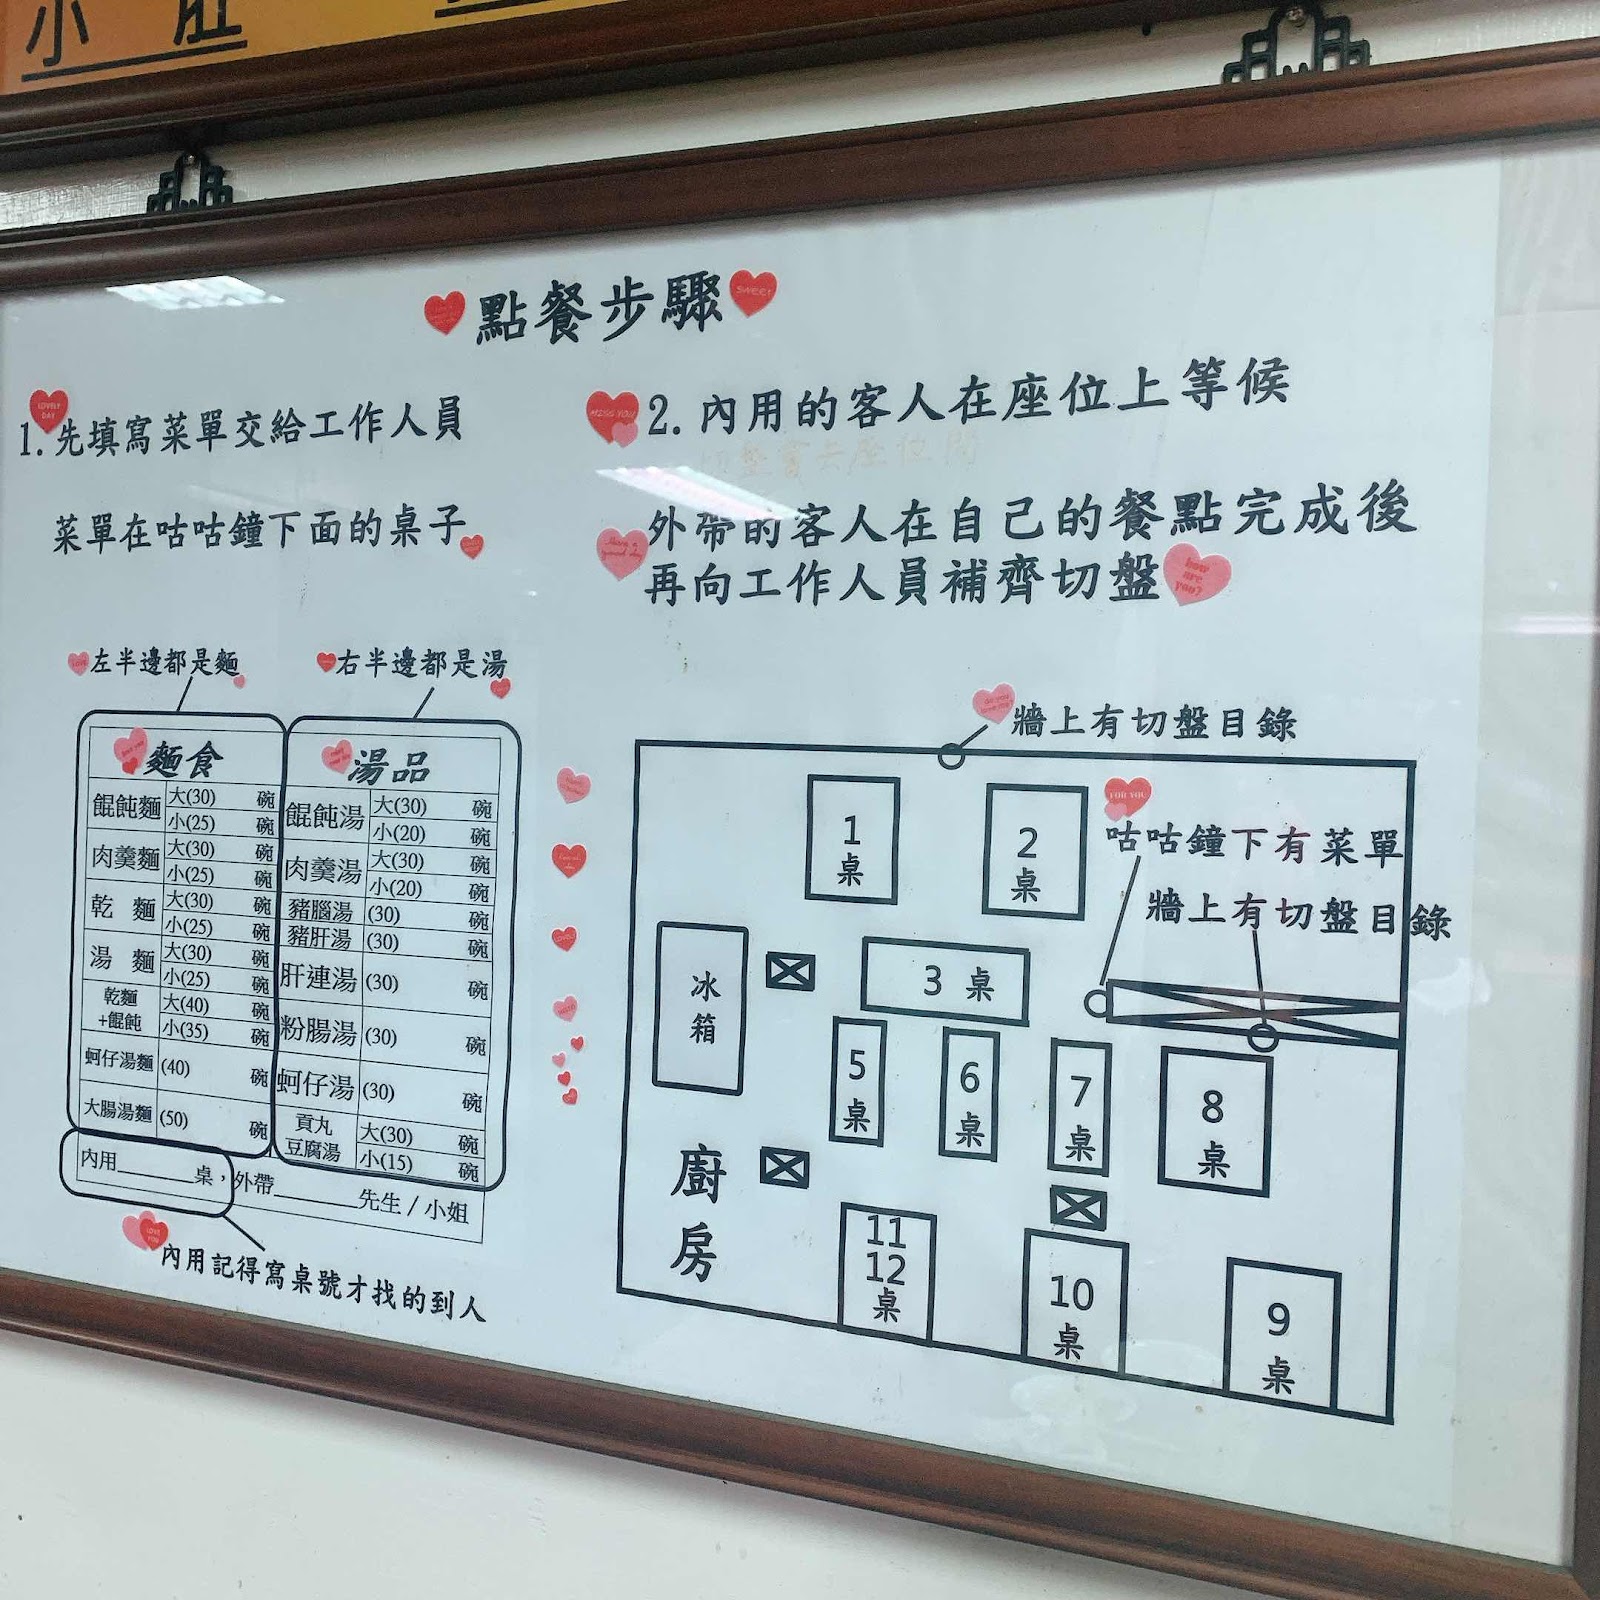 小 肚
點餐步驟
1.先填寫菜單交給工作人員
菜單在咕咕鐘下面的桌子
2.內用的客人在座位上等候
外帶的客人在自己的餐點完成後
再向工作人員補齊切盤
左半邊都是麵
右半邊都是湯
麵食
餛飩麵 大(30) 碗
小(25) 碗
肉羹麵 大(30) 碗
小(25) 碗
乾 麵 大(30) 碗
小(25) 碗
湯 麵 大(30) 碗
小(25) 碗
乾麵+餛飩 大(40) 碗
小(35) 碗
蚵仔湯麵 (40) 碗
大腸湯麵 (50) 碗
湯品
餛飩湯 大(30) 碗
小(20) 碗
肉羹湯 大(30) 碗
小(20) 碗
豬腦湯 (30) 碗
豬肝湯 (30) 碗
肝連湯 (30) 碗
粉腸湯 (30) 碗
蚵仔湯 (30) 碗
貢丸豆腐湯 大(30) 碗
小(15) 碗
內用______桌，外帶______先生/小姐
內用記得寫桌號才找的到人
牆上有切盤目錄
咕咕鐘下有菜單
牆上有切盤目錄
1桌
2桌
3 桌
冰箱
5桌
6桌
7桌
8桌
廚房
11
12
桌
10桌
9桌
SWEET
LOVELY DAY
MISS YOU
Have a good day
how are you?
FOR YOU
LOVE YOU